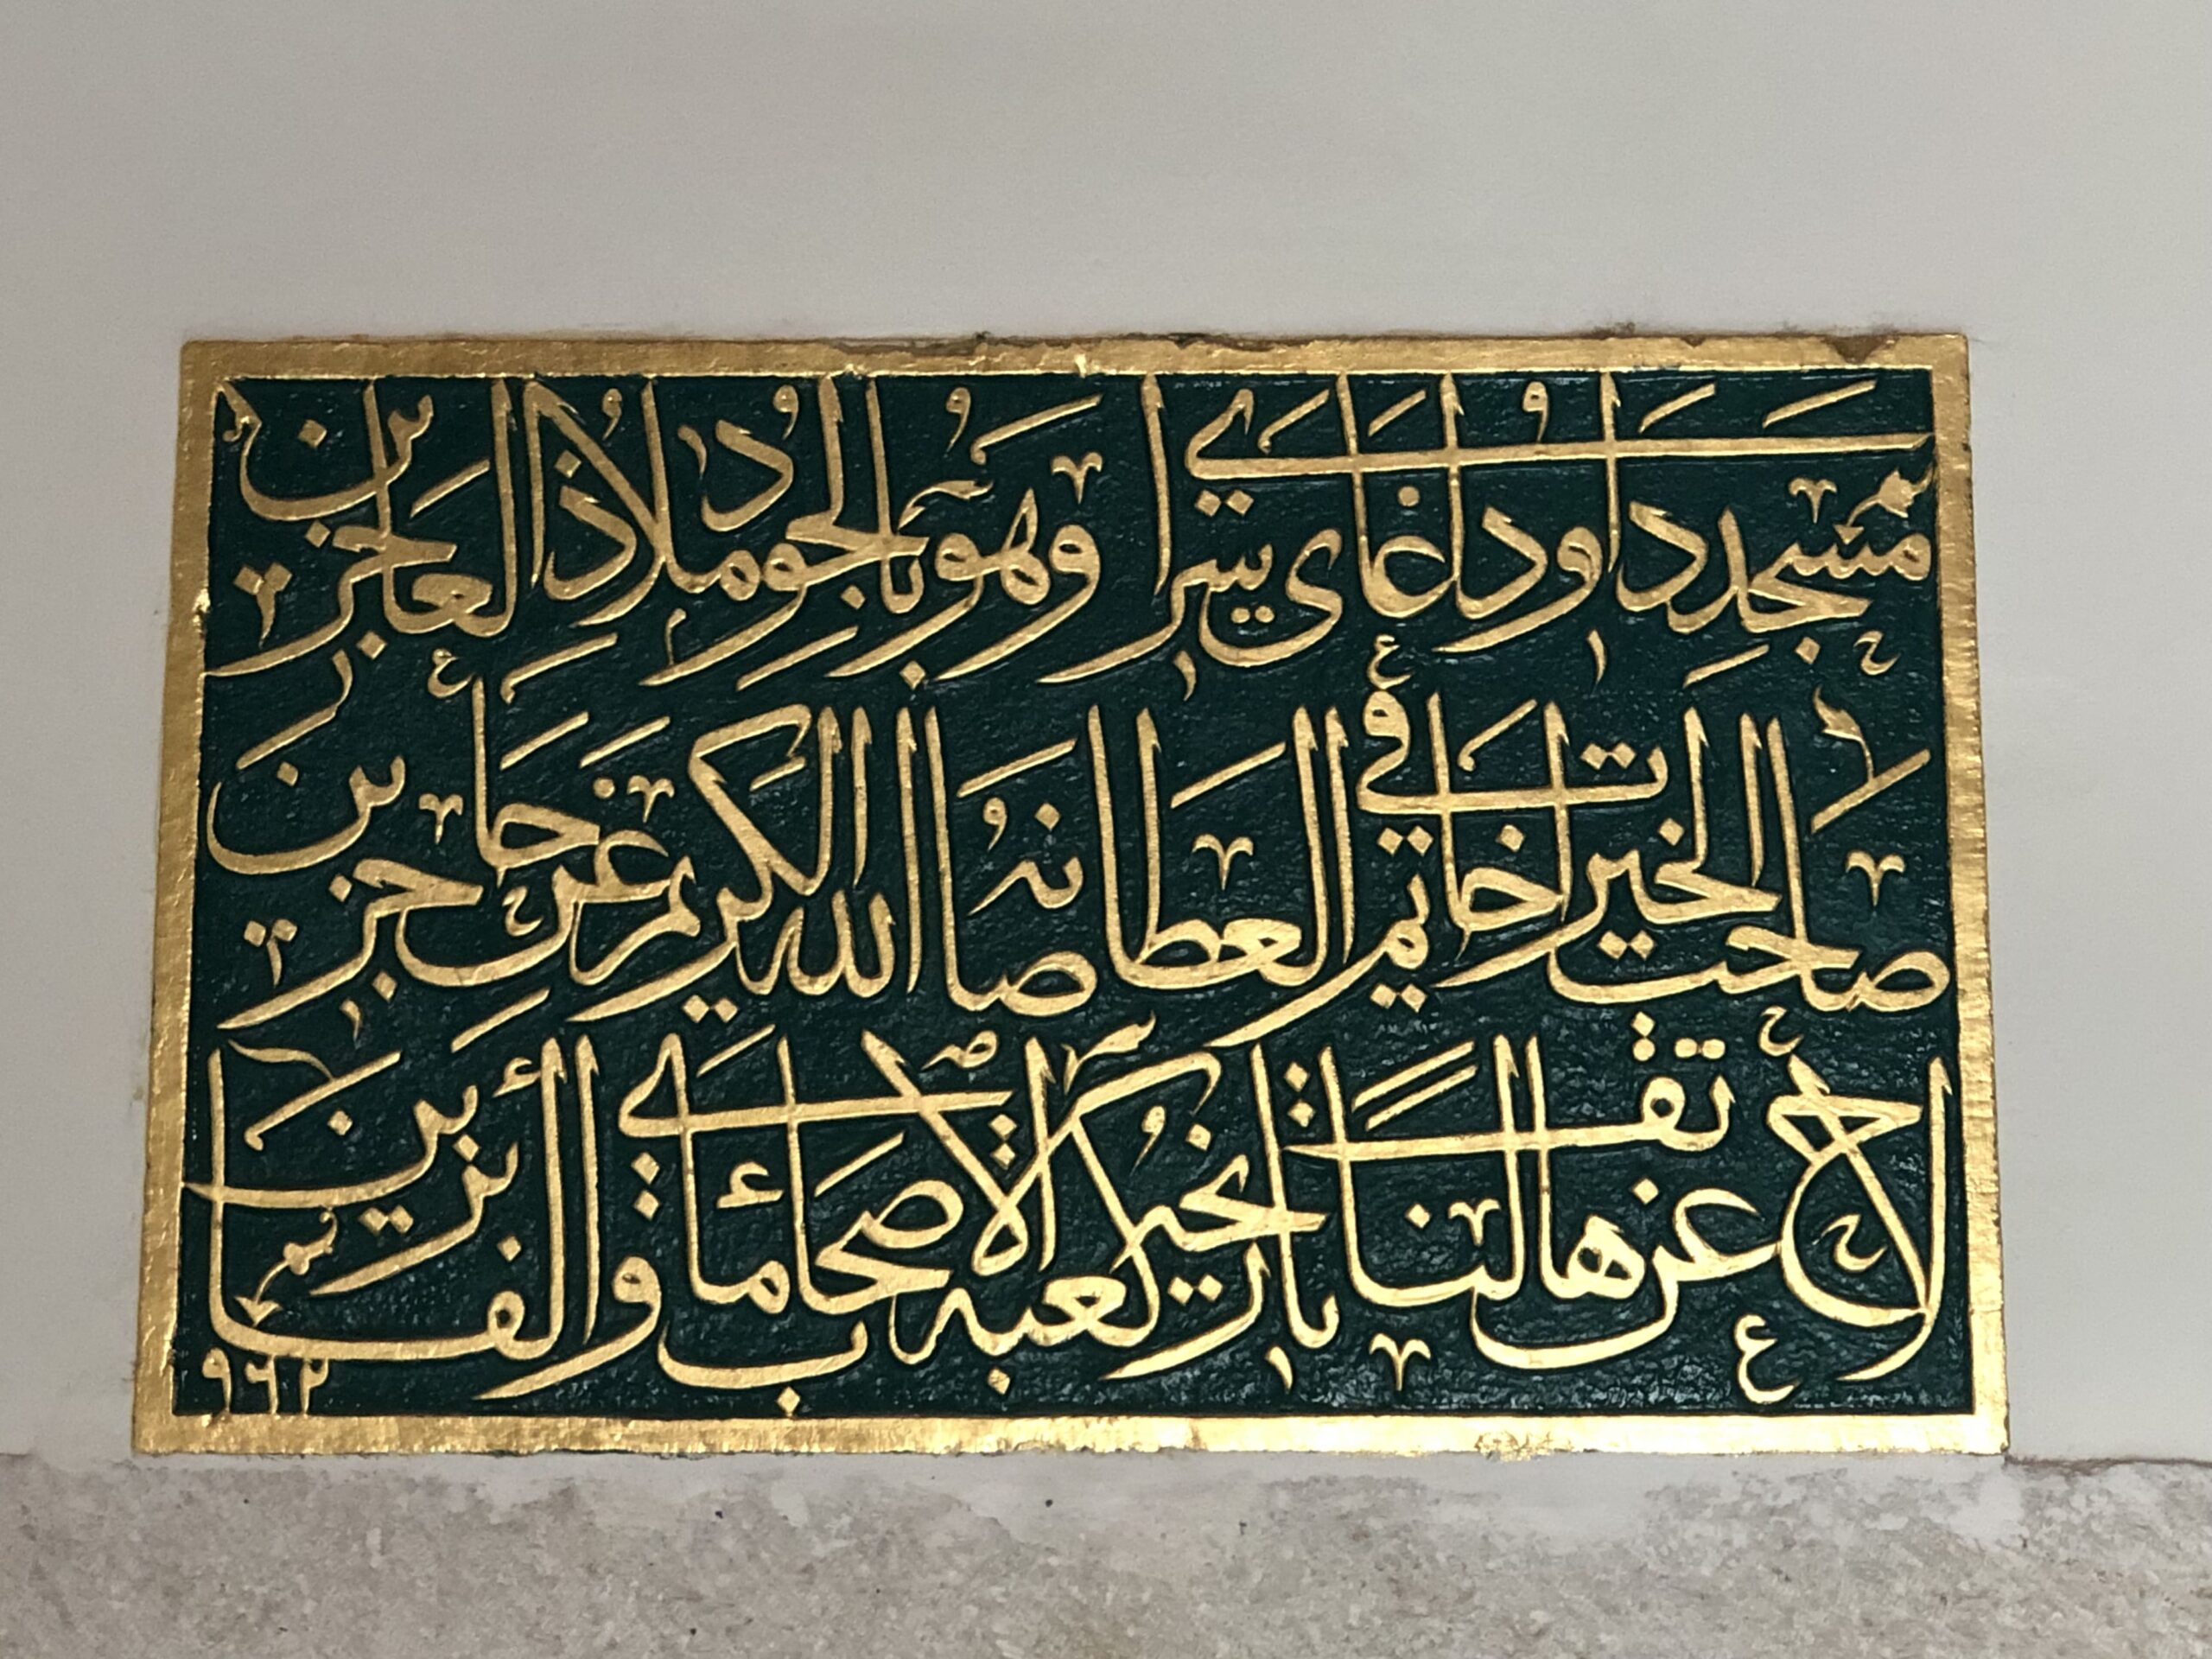 مسجد داود اغای سرا وهو بالجود ملاذ العاجزين
صاحب الخيرات خاتم في العطا صانه الله الكريم عن حاجزين
لاح عن هاتف لنا تاريخه كعبة الاصحاب مأوى الفائزين
٩٦٢